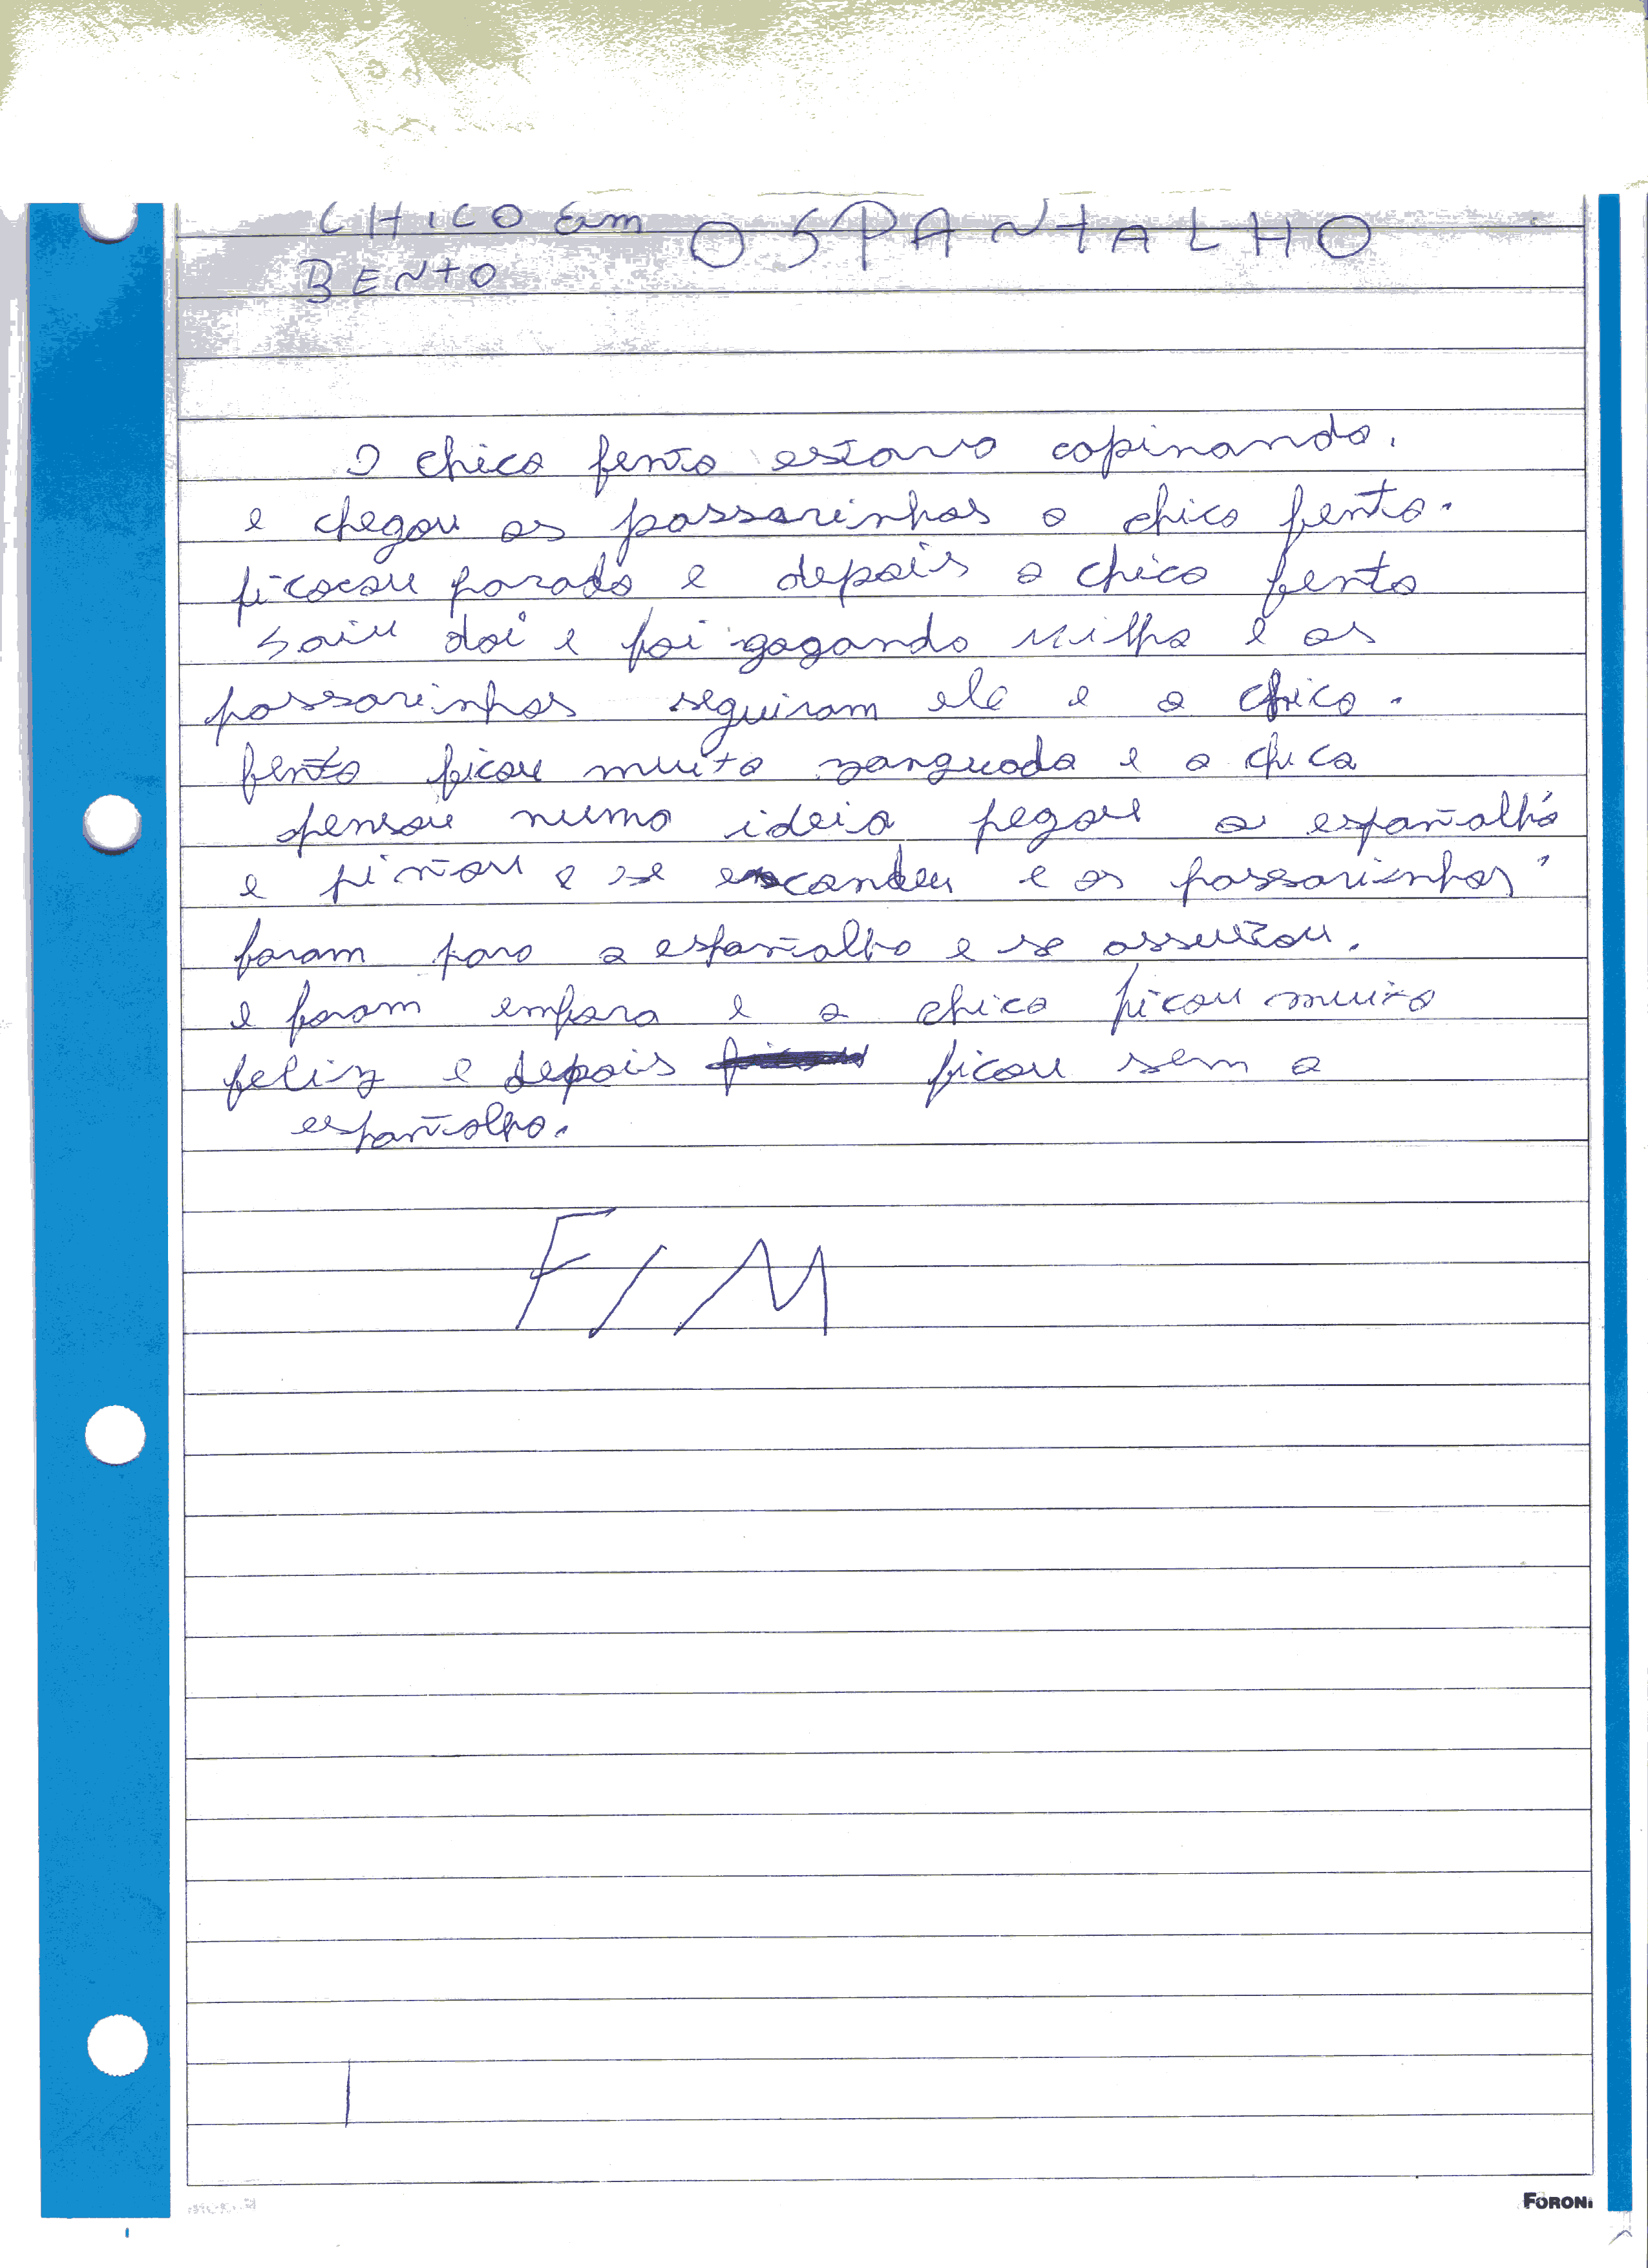 CHICO Em O SPANTALHO
BENTO
O chico bento estava capinando.
e chegou os passarinhos o chico bento.
ficocou parado e depois o chico bento
saiu dai e foi gogando milho e os
passarinhos seguiram ele e o chico.
bento ficou muito zanguado e o chico
pensou numa ideia pegou o espantalho
e pintou e se escondeu e os passarinhos
foram para o espantalho e se assuutou.
e foram embora e o chico ficou muito
feliz e depois ficou sem o
espantalho.
FIM
FORONI